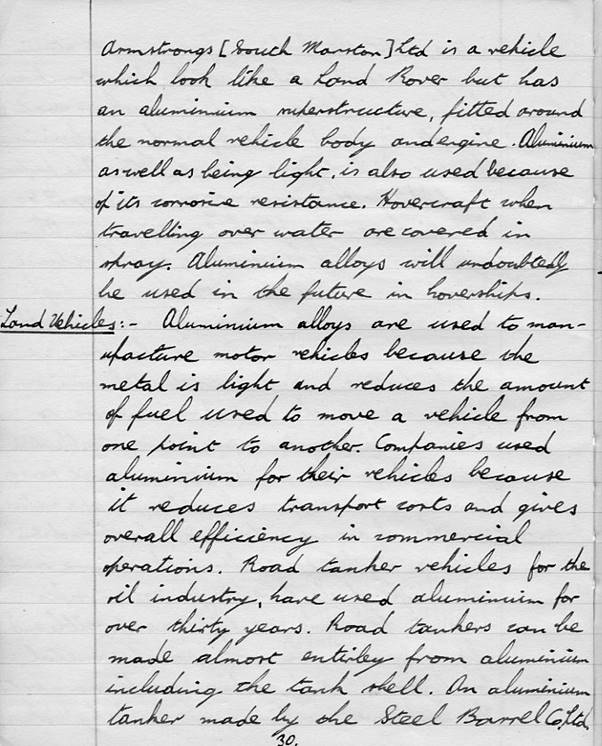 Armstrongs [South Marston] Ltd is a vehicle
which look like a Land Rover but has
an aluminium superstructure, fitted around
the normal vehicle body and engine. Aluminium
as well as being light, is also used because
of its corrosive resistance. Hovercraft when
travelling over water are covered in
spray. Aluminium alloys will undoubtedly
be used in the future in hoverships.
Land Vehicles:- Aluminium alloys are used to man-
ufacture motor vehicles because the
metal is light and reduces the amount
of fuel used to move a vehicle from
one point to another. Companies used
aluminium for their vehicles because
it reduces transport costs and gives
overall efficiency in commercial
operations. Road tanker vehicles for the
oil industry, have used aluminium for
over thirty years. Road tankers can be
made almost entirley from aluminium
including the tank shell. An aluminium
tanker made by the Steel Barrel Co, Ltd.
30.